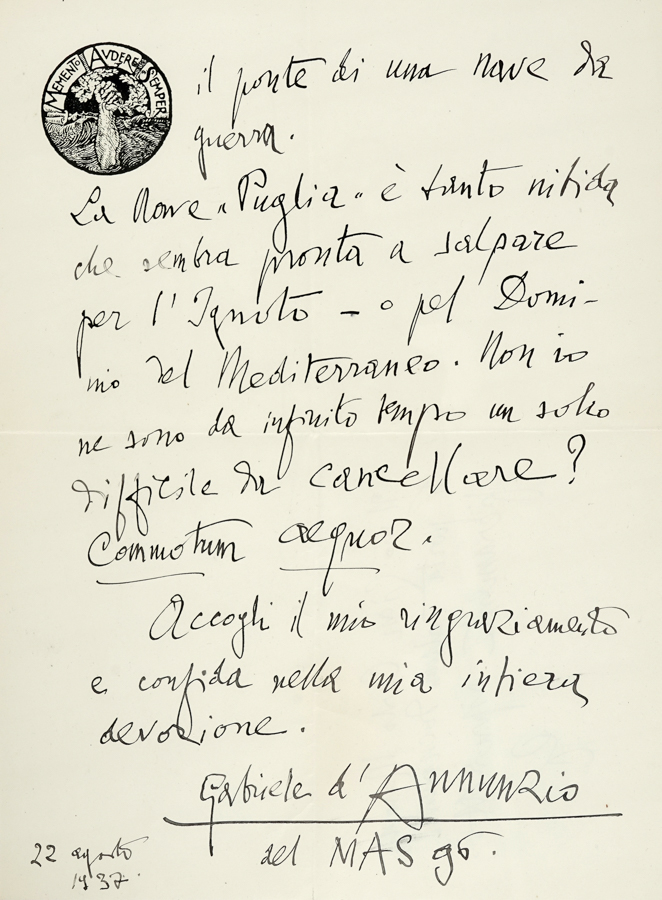 MEMENTO AVDERE SEMPER
il ponte di una nave da
guerra.
La Nave "Puglia" è tanto nitida
che sembra pronta a salpare
per l'Ignoto – o pel Domi-
nio del Mediterraneo. Non io
ne sono da infinito tempo un solco
difficile da cancellare?
Commotum aequor.
Accogli il mio ringraziamento
e confida nella mia intiera
devozione.
Gabriele d'Annunzio
del MAS 96.
22 agosto
1937.